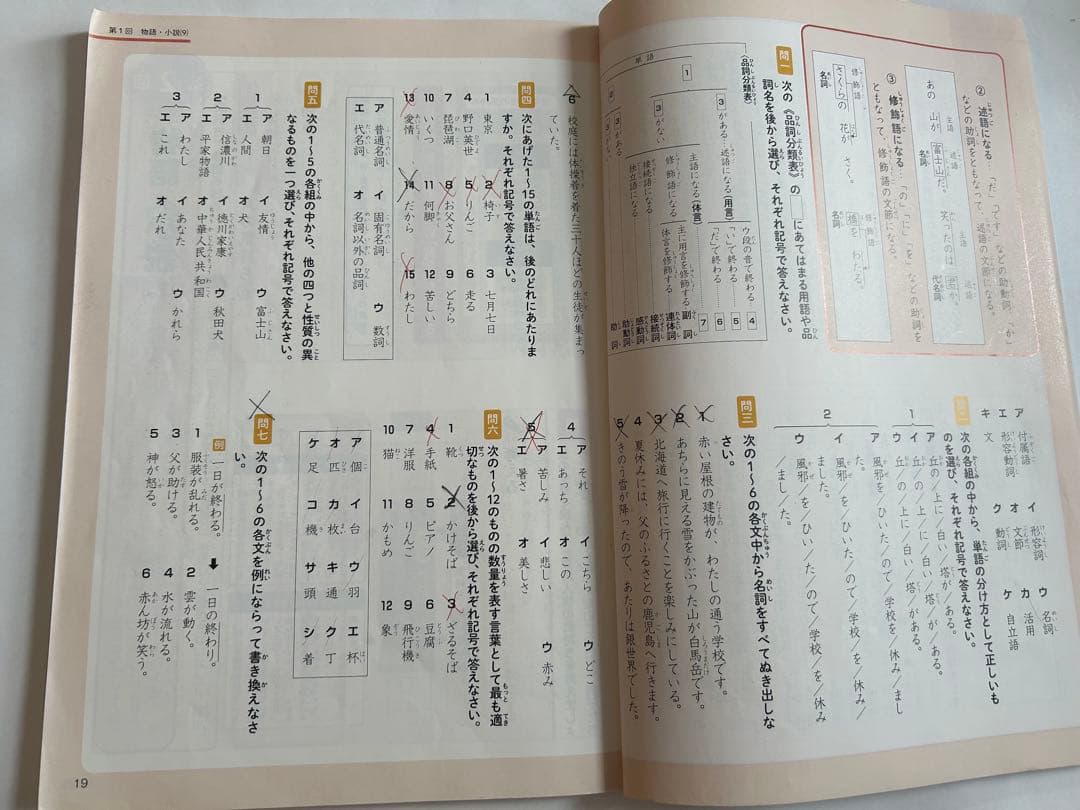 ② 述語になる…「だ」「です」などの助動詞、「か」
などの助詞をともなって、述語の文節になる。
主語 述語 主語 述語
あの 山が 富士山だ。 笑ったのは 君か。
名詞 代名詞
③ 修飾語になる…「の」「に」「を」などの助詞を
ともなって、修飾語の文節になる。
修飾語 修飾語
さくらの 花が さく。 橋を わたる。
名詞 名詞
問一 次の《品詞分類表》の にあてはまる用語や品
詞名を後から選び、それぞれ記号で答えなさい。
《品詞分類表》
単語
1
2 がある
3 がある…述語になる (用言)
ウ段の音で終わる 4
「い」で終わる 5
「だ」で終わる 6
3 がない
主語になる (体言) 7
修飾語になる
主に用言を修飾する 副詞
体言を修飾する 連体詞
接続語になる 接続詞
独立語になる 感動詞
助動詞
助詞
ア 付属語 イ 形容詞 ウ 名詞
エ 形容動詞 オ 文節 カ 活用
キ 文 ク 動詞 ケ 自立語
次の各組の中から、単語の分け方として正しいも
のを選び、それぞれ記号で答えなさい。
1
ア 丘の/上に/白い/塔が/ある。
イ 丘/の/上/に/白い/塔/が/ある。
ウ 丘の/上に/白い/塔/がある。
2
ア 風邪/を/ひいた/の/で/学校/を/休み/まし
た。
イ 風邪/を/ひい/た/ので/学校/を/休み/
ました。
ウ 風邪/を/ひい/た/ので/学校/を/休み
/まし/た。
問三 次の1〜5の各文中から名詞をすべてぬき出しな
さい。
1 赤い屋根の建物が、わたしの通う学校です。
2 あちらに見える雪をかぶった山が白馬岳です。
3 北海道へ旅行に行くことを楽しみにしている。
4 夏休みには、父のふるさとの鹿児島へ行きます。
5 きのう雪が降ったので、あたりは銀世界でした。
第1回 物語・小説(9)
6 校庭には体操着を着た三十人ほどの生徒が集まっ
ていた。
問四 次にあげた1〜15の単語は、後のどれにあたりま
すか。それぞれ記号で答えなさい。
1 東京 2 椅子 3 七月七日
4 野口英世 5 りんご 6 走る
7 琵琶湖 8 お父さん 9 どちら
10 いくつ 11 何脚 12 苦しい
13 愛情 14 だから 15 わたし
ア 普通名詞 イ 固有名詞 ウ 数詞
エ 代名詞 オ 名詞以外の品詞
問五 次の1〜5の各組の中から、他の四つと性質の異
なるものを一つ選び、それぞれ記号で答えなさい。
1
ア 朝日 イ 友情 ウ 富士山
エ 人間 オ 犬
2
ア 信濃川 イ 徳川家康 ウ 秋田犬
エ 平家物語 オ 中華人民共和国
3
ア わたし イ あなた ウ かれら
エ これ オ だれ
4
ア それ イ こちら ウ どこ
エ あっち オ この
5
ア 苦しみ イ 悲しい ウ 赤み
エ 暑さ オ 美しさ
問六 次の1〜12のものの数量を表す言葉として最も適
切なものを後から選び、それぞれ記号で答えなさい。
1 靴 2 かけそば 3 ざるそば
4 手紙 5 ピアノ 6 豆腐
7 洋服 8 りんご 9 飛行機
10 猫 11 かもめ 12 象
ア 個 イ 台 ウ 羽 エ 杯
オ 匹 カ 枚 キ 通 ク 丁
ケ 足 コ 機 サ 頭 シ 着
問七 次の1〜6の各文を例にならって書き換えなさ
い。
例 一日が終わる。 ➡ 一日の終わり。
1 服装が乱れる。 2 雲が動く。
3 父が助ける。 4 水が流れる。
5 神が怒る。 6 赤ん坊が笑う。
19